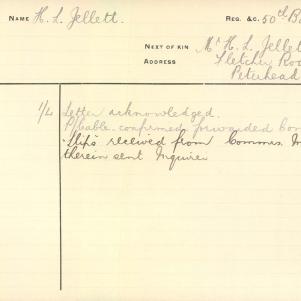 NAME H. L. Jellett. REG. &c. 50th B
NEXT OF KIN Mr H. L. Jellet
ADDRESS Fletcher Roa
Peterhead
1/4 Letter acknowledged.
P/Cable. confirmed forwarded
Slips received from Commrs.
therein sent Inquirer